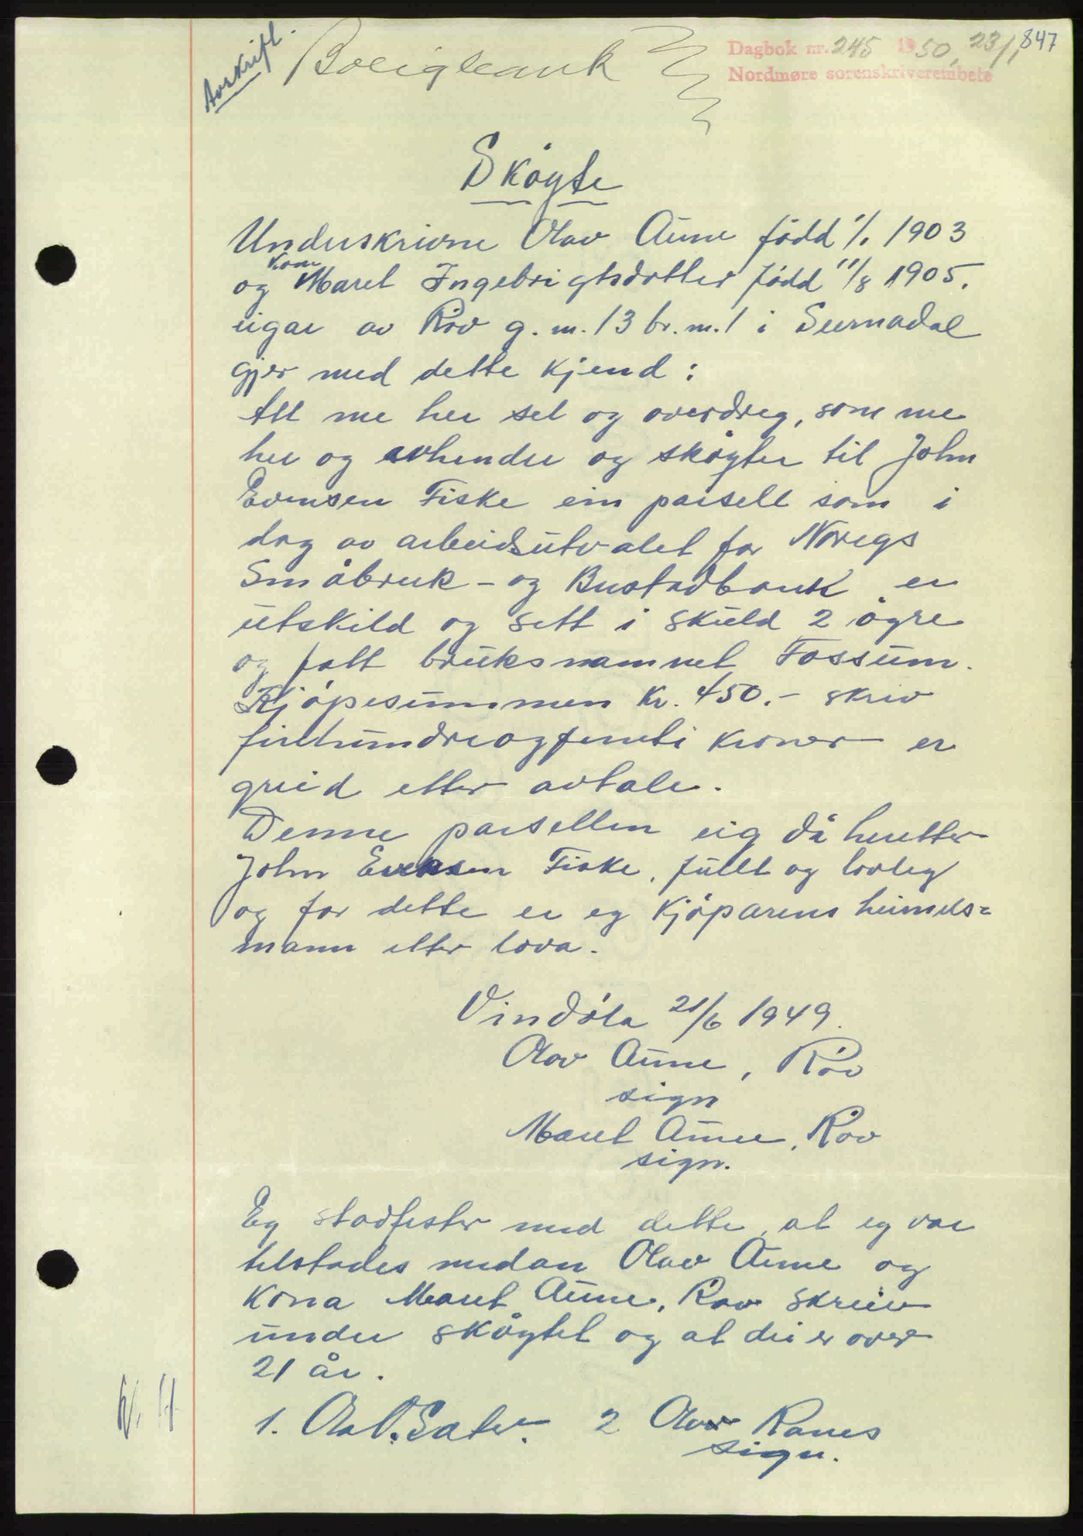 Avskrift.
Boligbank
Dagbok nr. 245 1950, 23/1
847
Nordmøre sorenskriverembete
Skøyte
Underskrivne Olav Aune född 1/1 1903
kona
og Maret Ingebrigtsdotter född 11/8 1905.
eigar av Röv g. m. 13 br. m. 1 i Surnadal
gjer med dette kjend:
At me her sel og overdreg, som me
her og avhender og sköyter til John
Evensen Fiske ein parsell som i
dag av arbeidsutvalet for Noregs
Småbruk- og Bustadbank er
utskild og sett i skuld 2 öyre
og fått bruksnamnet Fossum.
Kjöpesummen kr. 450.- skriv
firehundreogfemti kroner er
greid etter avtale.
Denne parsellen eig då heretter
John Evensen Fiske, fullt og lovleg
og for dette er eg kjöparens heimels=
mann etter lova.
Vindöla 21/6 1949.
Olav Aune, Röv
sign
Maret Aune, Röv
sign.
Eg stadfester med dette, at eg var
tilstades medan Olav Aune og
kona Maret Aune, Röv skreiv
under sköytet og at dei er over
21 år.
1. Ola O. Sæter. 2 Olav Ranes
sign.